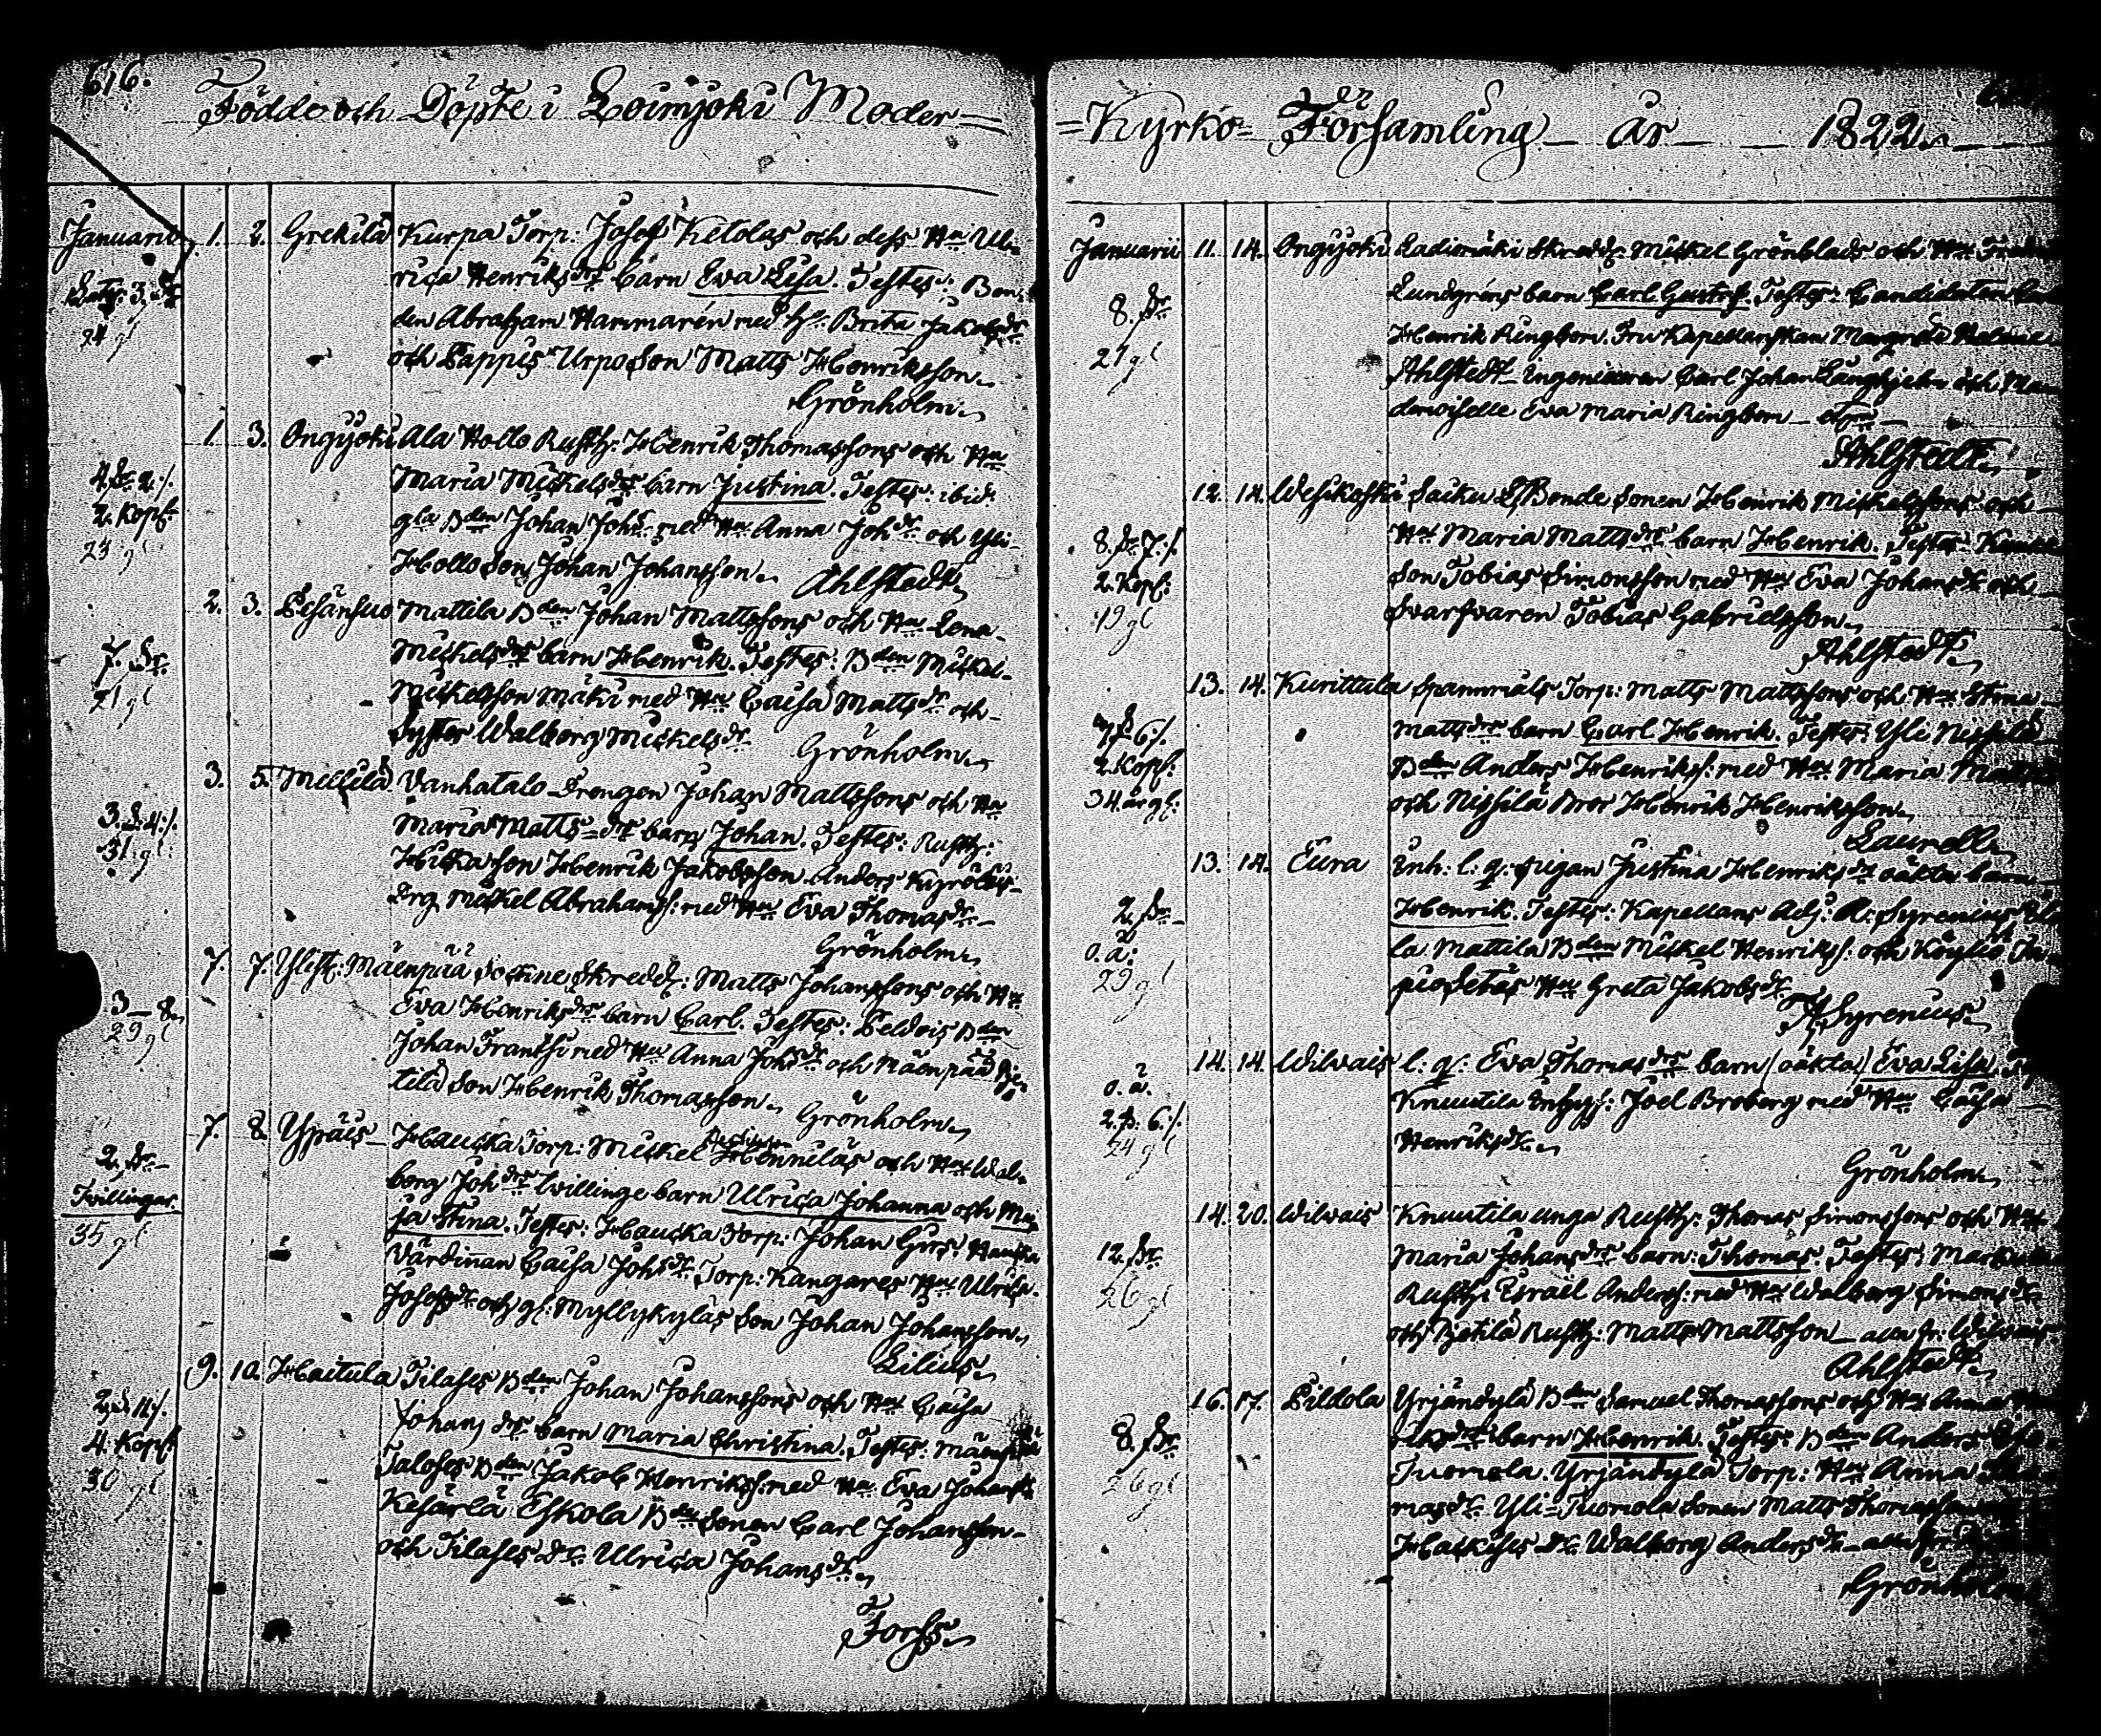 616.
Födde och Döpte i Loimjoki Moder-
Januarii 1. 2. Grekilä Kurpa Torp: Josef Ketolas och dess Hu Ul-
rica Henriksdrs barn Eva Lisa. Testes: Bon-
3.
24 gl
den Abraham Hammarén med Brita Jakobsdr
och Lappis Urpo Son Matts Henriksson
Grönholm
1. 3. Ongijoki Ala Hollo Rusth: Henrik Thomassons och Hu
4. 2 :/.
Maria Mickelsdrs barn Justina. Testes: ibid:
2. Kopf:
23 gl
gla Bden Johan Johs: med Hu Anna Johdr och Yli-
Hollo Son Johan Johansson. Ahlstedt
2. 3. Pesänsuo Mattila Bden Johan Mattssons och Hu Lena
7.
21 gl
Mickelsdrs barn Henrik. Testes: Bden Mickel
Mickelsson Mäki med Hu Caisa Mattsdr och
Syster Walborg Mickelsdr Grönholm
3. 5. Mellilä Vanhatalo Drengen Johan Mattssons och Hu
3. 4:/.
31 gl:
Maria Mattsdrs barn Johan. Testes: Rusth:
son Henrik Jakobsson. Anders
drg Mickel Abrahams: med Hu Eva Thomasdr
Grönholm
7. 7. Ylist: Mäenpää Sockne Skredd: Matts Johanssons och Hu
3 - 8
29 gl
Eva Henriksdrs barn Carl. Testes: Bden
Johan Frantsi med Hu Anna Johsdr och Mäenpää Pje-
tilä Son Henrik Thomasson. Grönholm
7. 8. Ypäis Haucka Torp: Mickel Hennilas och Hu Wal-
2.
Tvillingar.
35 gl
borg Johdrs tvillinge barn Ulrica Johanna och Ma-
ja Stina. Testes: Haucka Torp: Johan Haucka
Värdinnan Caisa Johsdr Torp: Kangares Hu Ulrica
Josefsdr och Myllykyläs Son Johan Johansson
Lilius
9. 10. Haitula Tilases Bden Johan Johanssons och Hu Caisa
4. Kopf
30 gl
Johans drs barn Maria Christina. Testes: Mäenpää
Taloses Bden Jakob Henrikss: med Hu Eva Johansdr
Kesärlä Eskola Bde Sonen Carl Johansson
och Tilases Dr: Ulrica Johansdr
Forss
=Kyrko= Församling år 1822.
Januarii 11. 14. Ongijoki Ladiomäki Skredd: Mickel Grönblads och Hu
8.
21 gl
Lundgréns barn Carl Gustaf. Testes: Candidaten
Henrik Ringbom. Fru Kapellanskan Margreta
Ahlstedt Ingenieuren Carl Johan Långhjelm och Ma-
demoiselle Eva Maria Ringbom
Ahlstedt
12. 14. Wesikoski Saicku Bonde Sonen Henrik Mickelssons och
8. 7:/.
2. Kopf:
19 gl
Hu Maria Mattsdrs barn Henrik. Testes:
Son Tobias Simonsson med Hu Eva Johansdr och
Svarfvaren Tobias Gabrielsson
Ahlstedt
13. 14. Kurittula Torp: Matts Mattssons och Hu Stina
7. 6:/.
2. Kopf:
34 år gl:
Mattsdrs barn Carl Henrik. Testes: Yli Nissilä
Bden Anders Henrikss: med Hu Maria
och Nissilä Bror Henrik Henriksson
Laurell
13. 14. Eura Inh: l: q: pigan Justina Henriksdr oäkta barn
2.
o. ä.
29 gl
Henrik. Testes: Kapellans Adj: A: Syrenius
la Mattila Bden Mickel Henrikss: och Köyliö
Hu Greta Jakobsdr
A Syrenius
14. 14. Wilvais l: q: Eva Thomasdrs barn (oäkta) Eva Lisa.
o. ä.
2. 6:/.
24 gl
Knuutila Inhys: Joel Broberg med Hu Caisa
Henriksdr
Grönholm
14. 20. Wilvais Knuutila unga Rusth: Thomas Simonssons och Hu
12.
26 gl
Maria Johansdrs barn: Thomas. Testes:
Rusth: Esraël Anderss: med Hu Walborg Simonsdr
och Pjetilä Rusth: Matts Mattsson
Ahlstedt
16. 17. Pildola Yrjänkylä Bden Samuel Thomassons och Hu Anna
8.
26 gl
barn Henrik. Testes: Bden Anders
Tuomola. Yrjänkylä Torp: Hu Anna Tho-
masdr. Yli-Tuomola Sonen Matts Thomasson
Dr: Walborg Andersdr
Grönholm